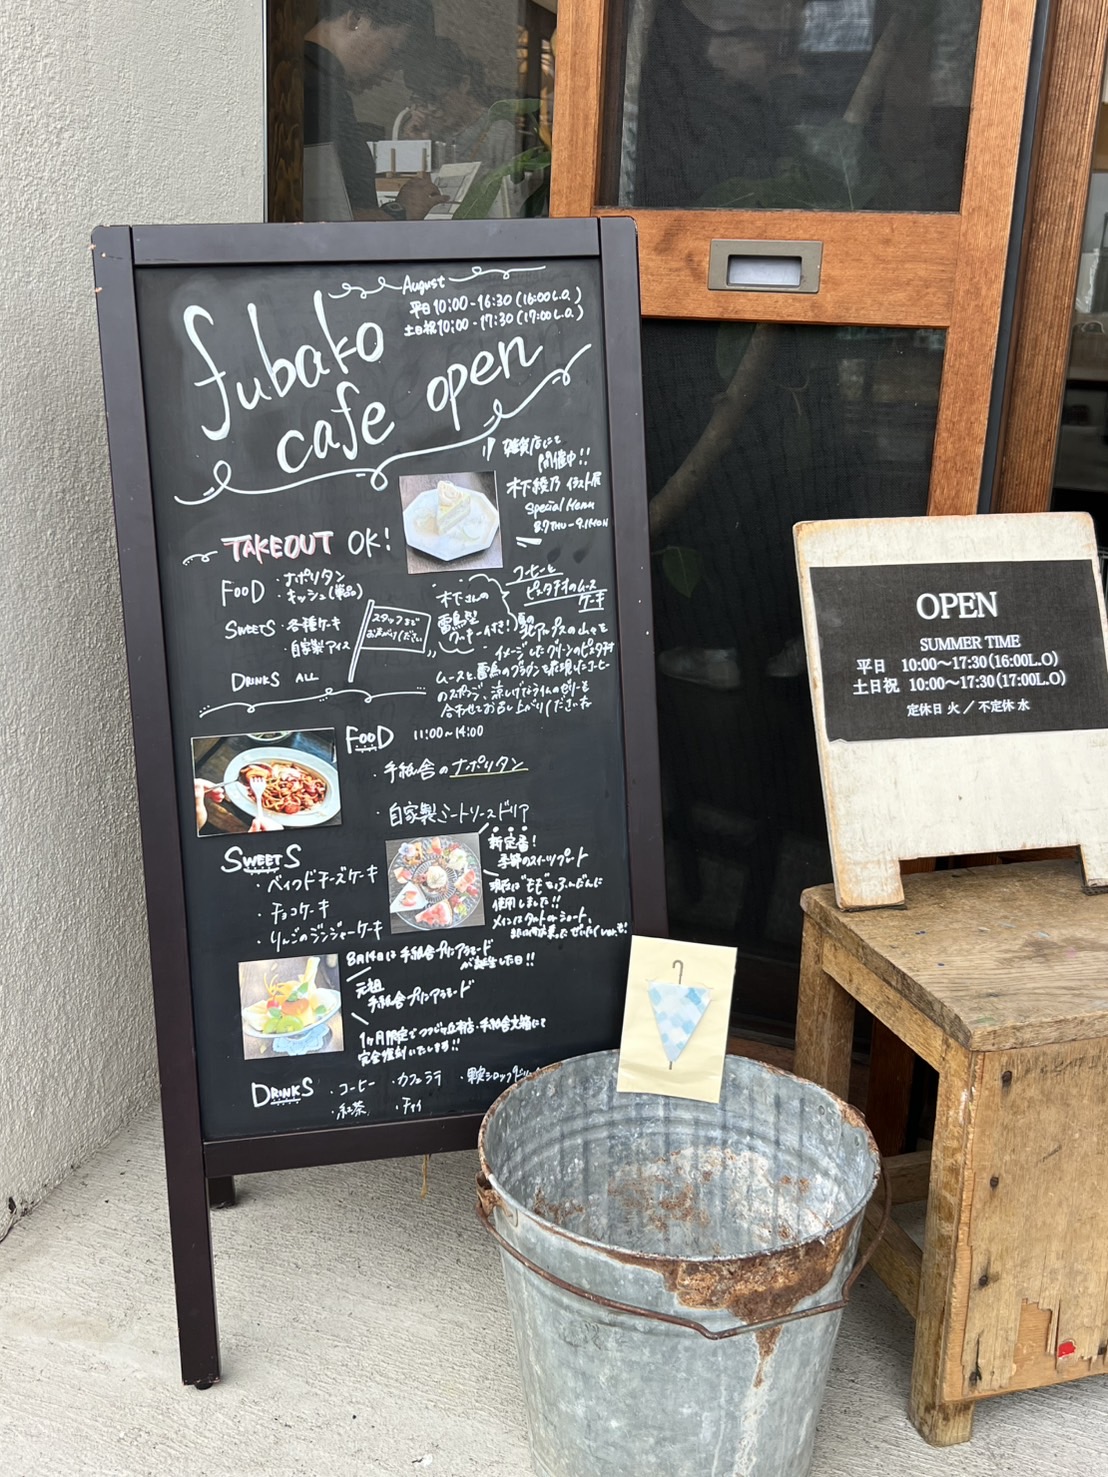 August
平日 10:00 - 16:30 (16:00 L.O.)
土日祝 10:00 - 17:30 (17:00 L.O.)
fubako
cafe open
雑貨店にて
開催中!!
木下綾乃 イラスト展
Special Menu
8.7 THU - 9.1 MON
TAKEOUT OK!
FOOD ・ナポリタン
・キッシュ(単品)
SWEETS ・各種ケーキ
・自家製アイス
DRINKS ALL
スタッフまで
お声がけください
木下さんの
雷鳥型
クッキー付き!
コーヒーと
ピスタチオのムース
ケーキ
夏の北アルプスの山々を
イメージしたグリーンのピスタチオ
ムースと雷鳥のブラウンを表現したコーヒー
のスポンジ、涼しげなライムのゼリーを
合わせてお召し上がりくださいね
FOOD 11:00~14:00
・手紙舎のナポリタン
・自家製ミートソースドリア
SWEETS
・ベイクドチーズケーキ
・チョコケーキ
・りんごのジンジャーケーキ
新定番!
季節のスイーツプレート
現在は"もも"をふんだんに
使用しました!!
メインはタルトorショート、
8月14日は 手紙舎プリンアラモード
が誕生した日!!
元祖
手紙舎プリンアラモード
1ヶ月限定でつつじヶ丘本店・手紙舎文箱にて
完全復刻いたします!!
DRINKS ・コーヒー ・カフェラテ
・紅茶 ・チャイ
OPEN
SUMMER TIME
平日 10:00～17:30(16:00L.O)
土日祝 10:00～17:30(17:00L.O)
定休日 火 / 不定休 水